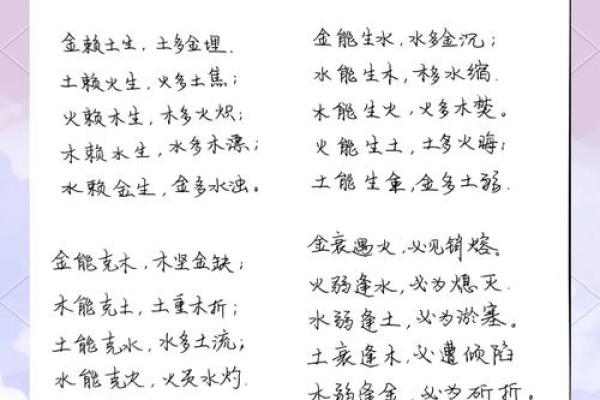 金赖土生，土多金埋.
土赖火生，火多土焦；
火赖木生，木多火炽；
木赖水生，水多木漂；
水赖金生，金多水浊。
金能生水，水多金沉；
水能生木，木多水缩.
木能生火，火多木焚。
火能生土，土多火晦；
土能生金，金多土弱.
金能克木，木坚金缺；
木能克土，土重木折；
土能克水，水多土流；
水能克火，火炎水灼.
金衰遇火，必见销熔。
火弱逢水，必为熄灭.
水弱逢土，必为淤塞。
土衰逢木，必遭倾陷
木弱逢金，必为斫折。